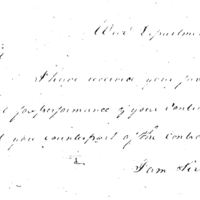 War Departme
I have received your
for performance of your contra
you counterpart of the contra
I am Sir